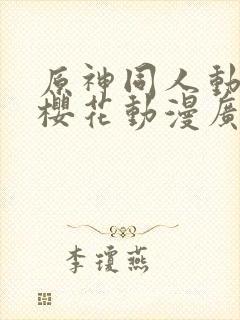 原神同人動
櫻花動漫廣
李瓊燕